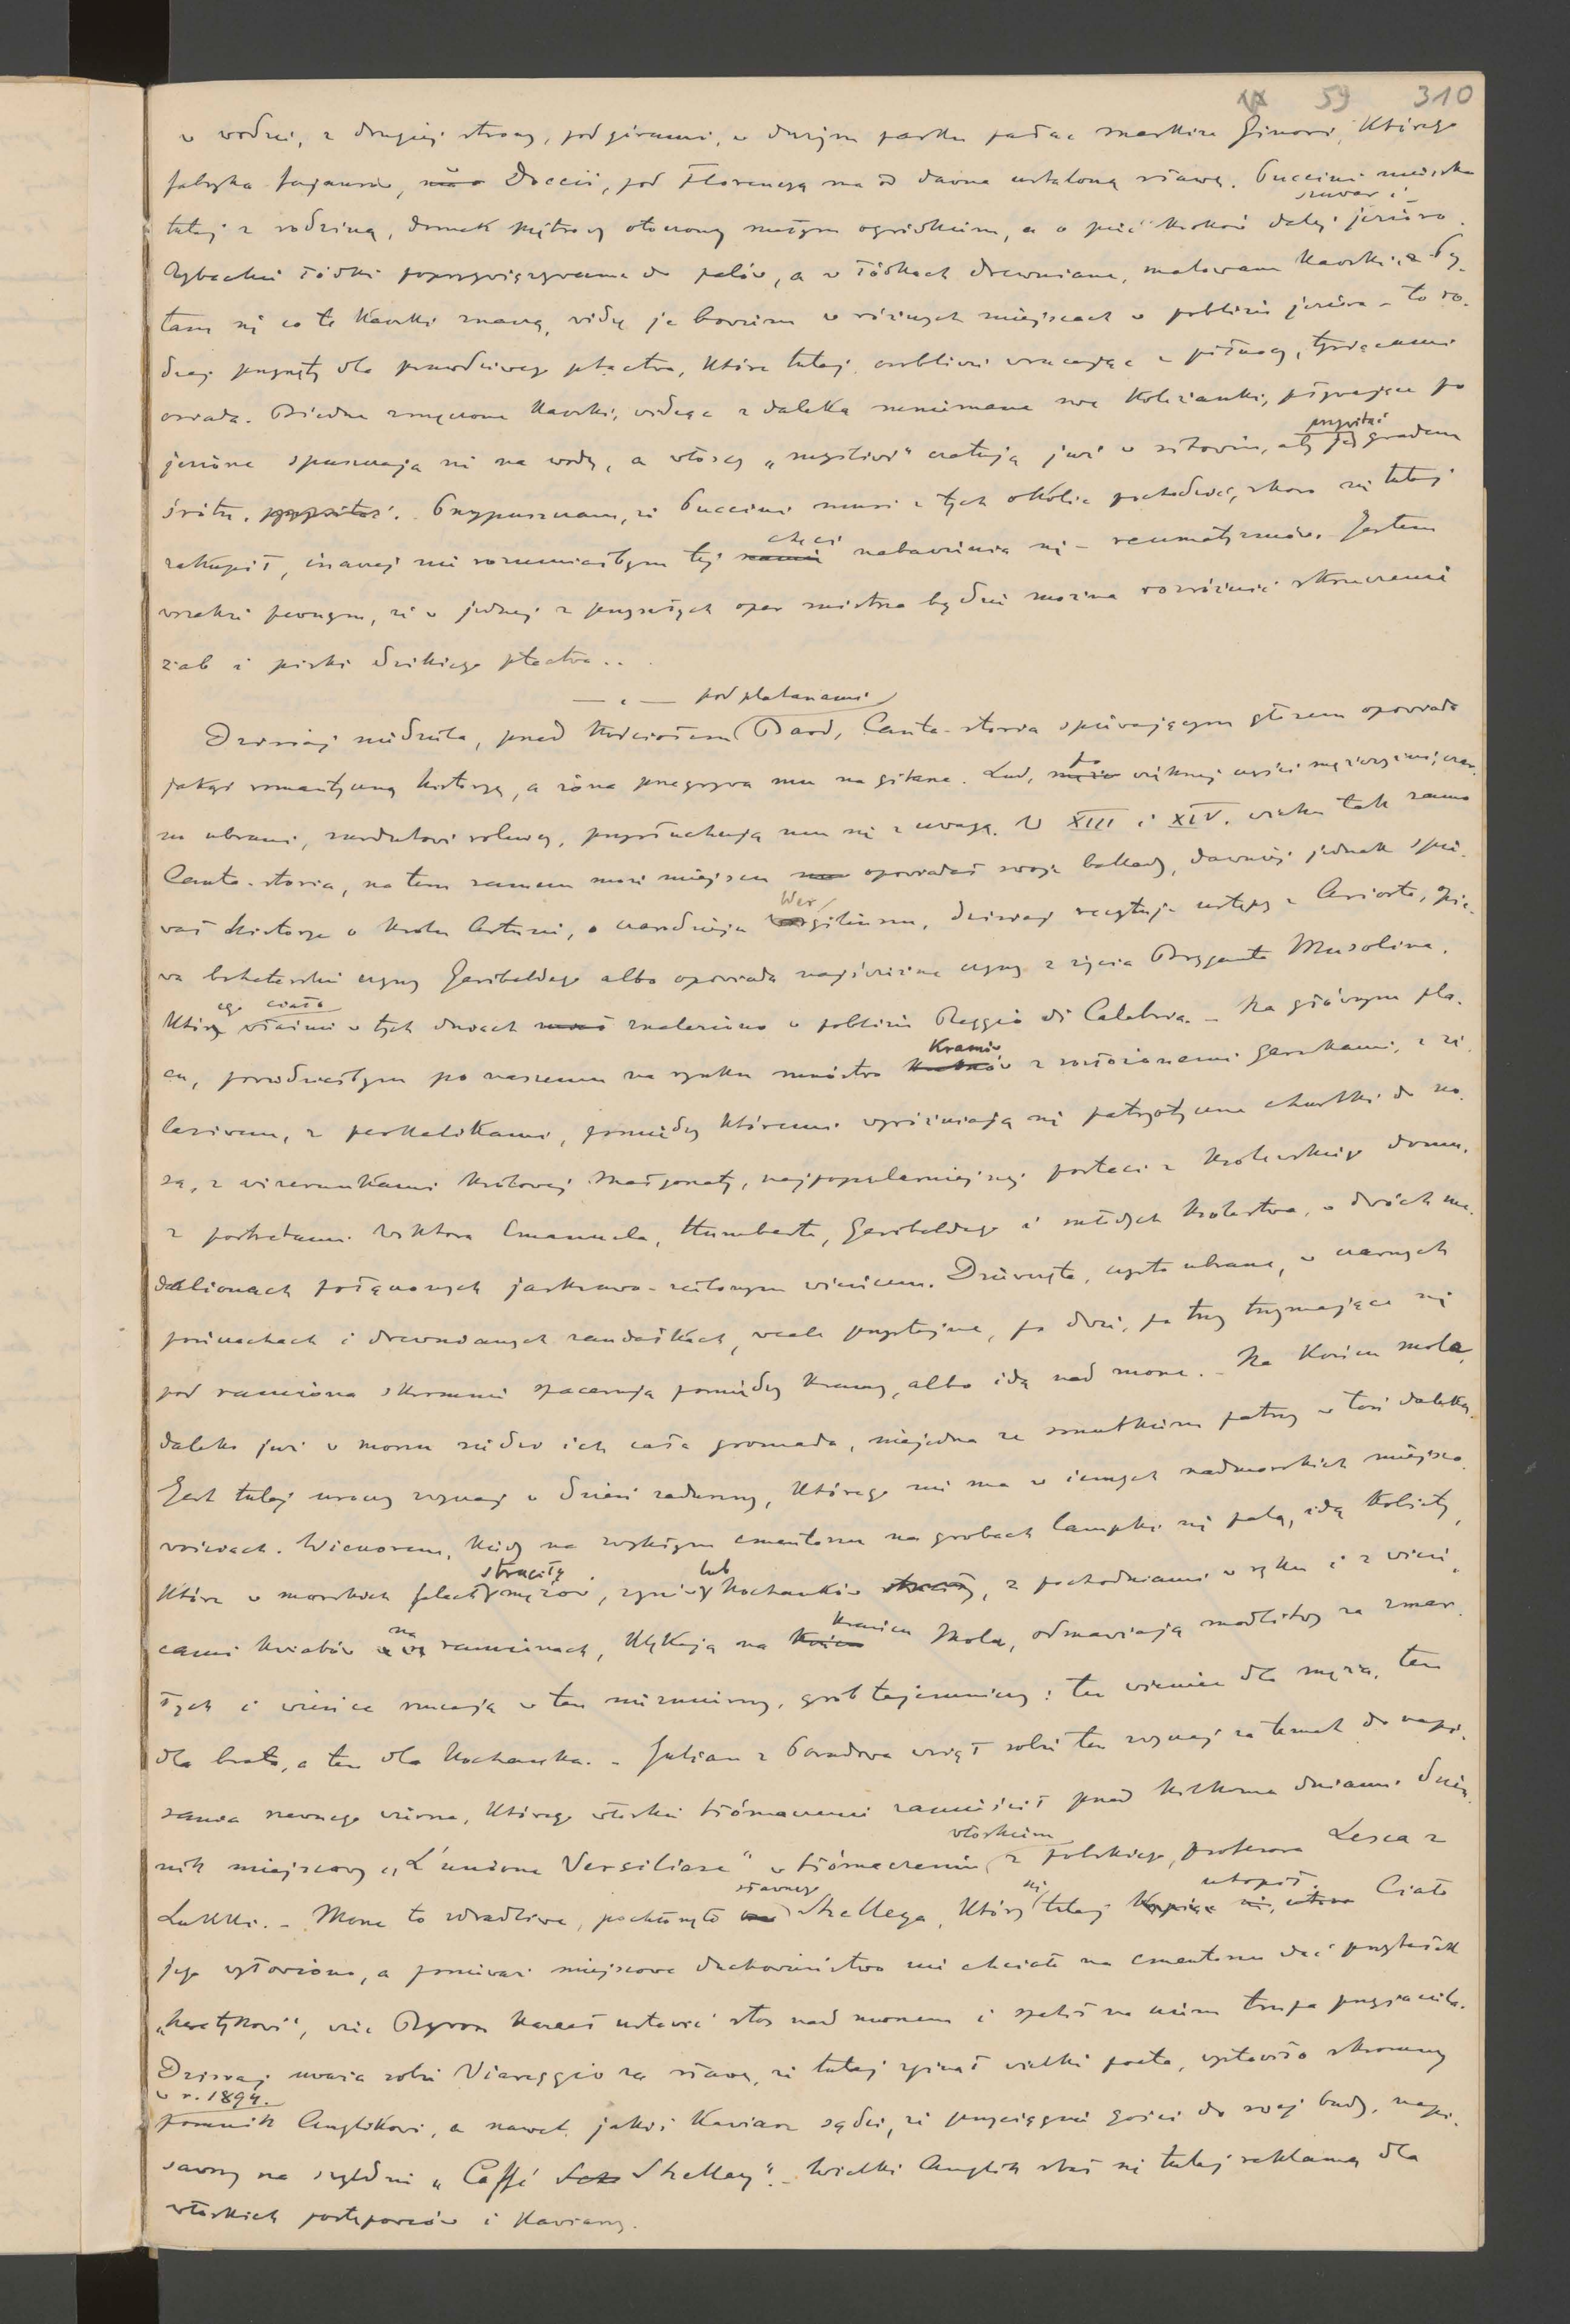 59 310
w wodzie, z drugiej strony, pod górami, w dużym parku pałac markiza Ginori, którego
fabryka fajansów, Doccii, pod Florencyą ma od dawna ustaloną sławę. Puccini mieszka
tutaj z rodziną, domek piętrowy otoczony małym ogródkiem, a o pięć kroków dalej szuwar i jezioro.
Rybackie łódki poprzywiązywane do palów, a w łódkach drewniane, malowane kawki. Py-
tam się co te kawki znaczą, widzę je bowiem w różnych miejscach w pobliżu jeziora – to ro-
dzaj przynęty dla prawdziwego ptactwa, które tutaj, osobliwie wracając z północy, tysiącami
osiada. Biedne zmęczone kawki, widząc z daleka mniemane swe koleżanki, pływające po
jeziorze spuszczają się na wodę, a włoscy „myśliwi" czatują już w sitowiu, aby je przywitać gradem
śrótu. Przypuszczam, że Puccini musi z tych okolic pochodzić, skoro się tutaj
zakupił, inaczej nie rozumiałbym tej chęci nabawienia się – reumatyzmów. Jestem
wszakże pewnym, że w jednej z przyszłych oper mistrza będzie można rozróżnić skrzeczenie
żab i piski dzikiego ptactwa..
— . —
Dzisiaj niedziela, przed kościołem pod platanami Bard, Canta-storia śpiewającym głosem opowiada
jakąś romantyczną historyę, a żona przegrywa mu na gitarze. Lud, po większej części mężczyźni, czar-
no ubrani, przysłuchują mu się z uwagą. W XIII i XIV. wieku tak samo
Canta-storia, na tem samem może miejscu opowiadał swoje ballady, dawniej jednak śpie-
wał historye o królu Arturze, o czarodzieju Wergiliuszu, dzisiaj recytuje ustępy z Ariosta, śpie-
wa bohaterskie czyny Garibaldego albo opowiada najświeższe czyny z życia Bryganta Musolina,
którego ciało właśnie w tych dniach znaleziono w pobliżu Reggio di Calabria. – Na głównym pla-
cu, powiedziałbym po naszemu na rynku mnóstwo kramów z rozłożonemi garnkami, z że-
lazivem, z perkalikami, pomiędzy któremi wyróżniają się patryotyczne chustki do no-
sa, z wizerunkami królowej Małgorzaty, najpopularniejszej postaci z królewskiego domu,
z portretami Wiktora Emanuela, Humberta, Garibaldego i młodych królestwa, w dwóch me-
dalionach połączonych jaskrawo-zielonym wieńcem. Dziewczęta, czysto ubrane, w czarnych
pończochach i drewnianych sandałkach, wcale przystojne, po dwie, po trzy trzymające się
pod ramiona skromnie spacerują pomiędzy kramy, albo idą nad morze. – Na końcu mola,
daleko już w morzu siedzi ich cała gromada, niejedna ze smutkiem patrzy w toń daleką.
Jest tutaj uroczy zwyczaj w dzień zaduszny, którego nie ma w innych nadmorskich miejsco-
wościach. Wieczorem, kiedy na zwykłym cmentarzu na grobach lampki się palą, idą kobiety,
które w morskich falach straciły mężów, synów lub kochanków, z pochodniami w ręku i z wień-
cami kwiatów na ramionach, klękają na krańcu Mola, odmawiają modlitwy za zmar-
łych i wieńce rzucają w ten niezmierny, grób tajemniczy: ten wieniec dla męża, ten
dla brata, a ten dla kochanka. – Julian z Poradowa wziął sobie ten zwyczaj za temat do napi-
sania rzewnego wiersza, którego włoskie tłómaczenie zamieścił przed kilkoma dniami dzien-
nik miejscowy „L'unione Versiliese" w tłómaczeniu włoskiem z polskiego, profesora Lesca z
Lukki. – Morze to zdradliwe, pochłonęło sławnego Shelleya, który się tutaj utopił. Ciało
jego wyłowiono, a ponieważ miejscowe duchowieństwo nie chciało na cmentarzu dać przytułek
„heretykowi", więc Byron kazał ustawić stos nad morzem i spalić na nim trupa przyjaciela.
Dzisiaj uważa sobie Viareggio za sławę, że tutaj zginął wielki poeta, wystawiło skromny
w r. 1894.
pomnik Anglikowi, a nawet jakiś kawiarz sądzi, że przyciągnie gości do swej budy, napi-
sawszy na szyldzie „Caffé Shelley". – Wielki Anglik stał się tutaj reklamą dla
włoskich postępowców i kawiarzy.